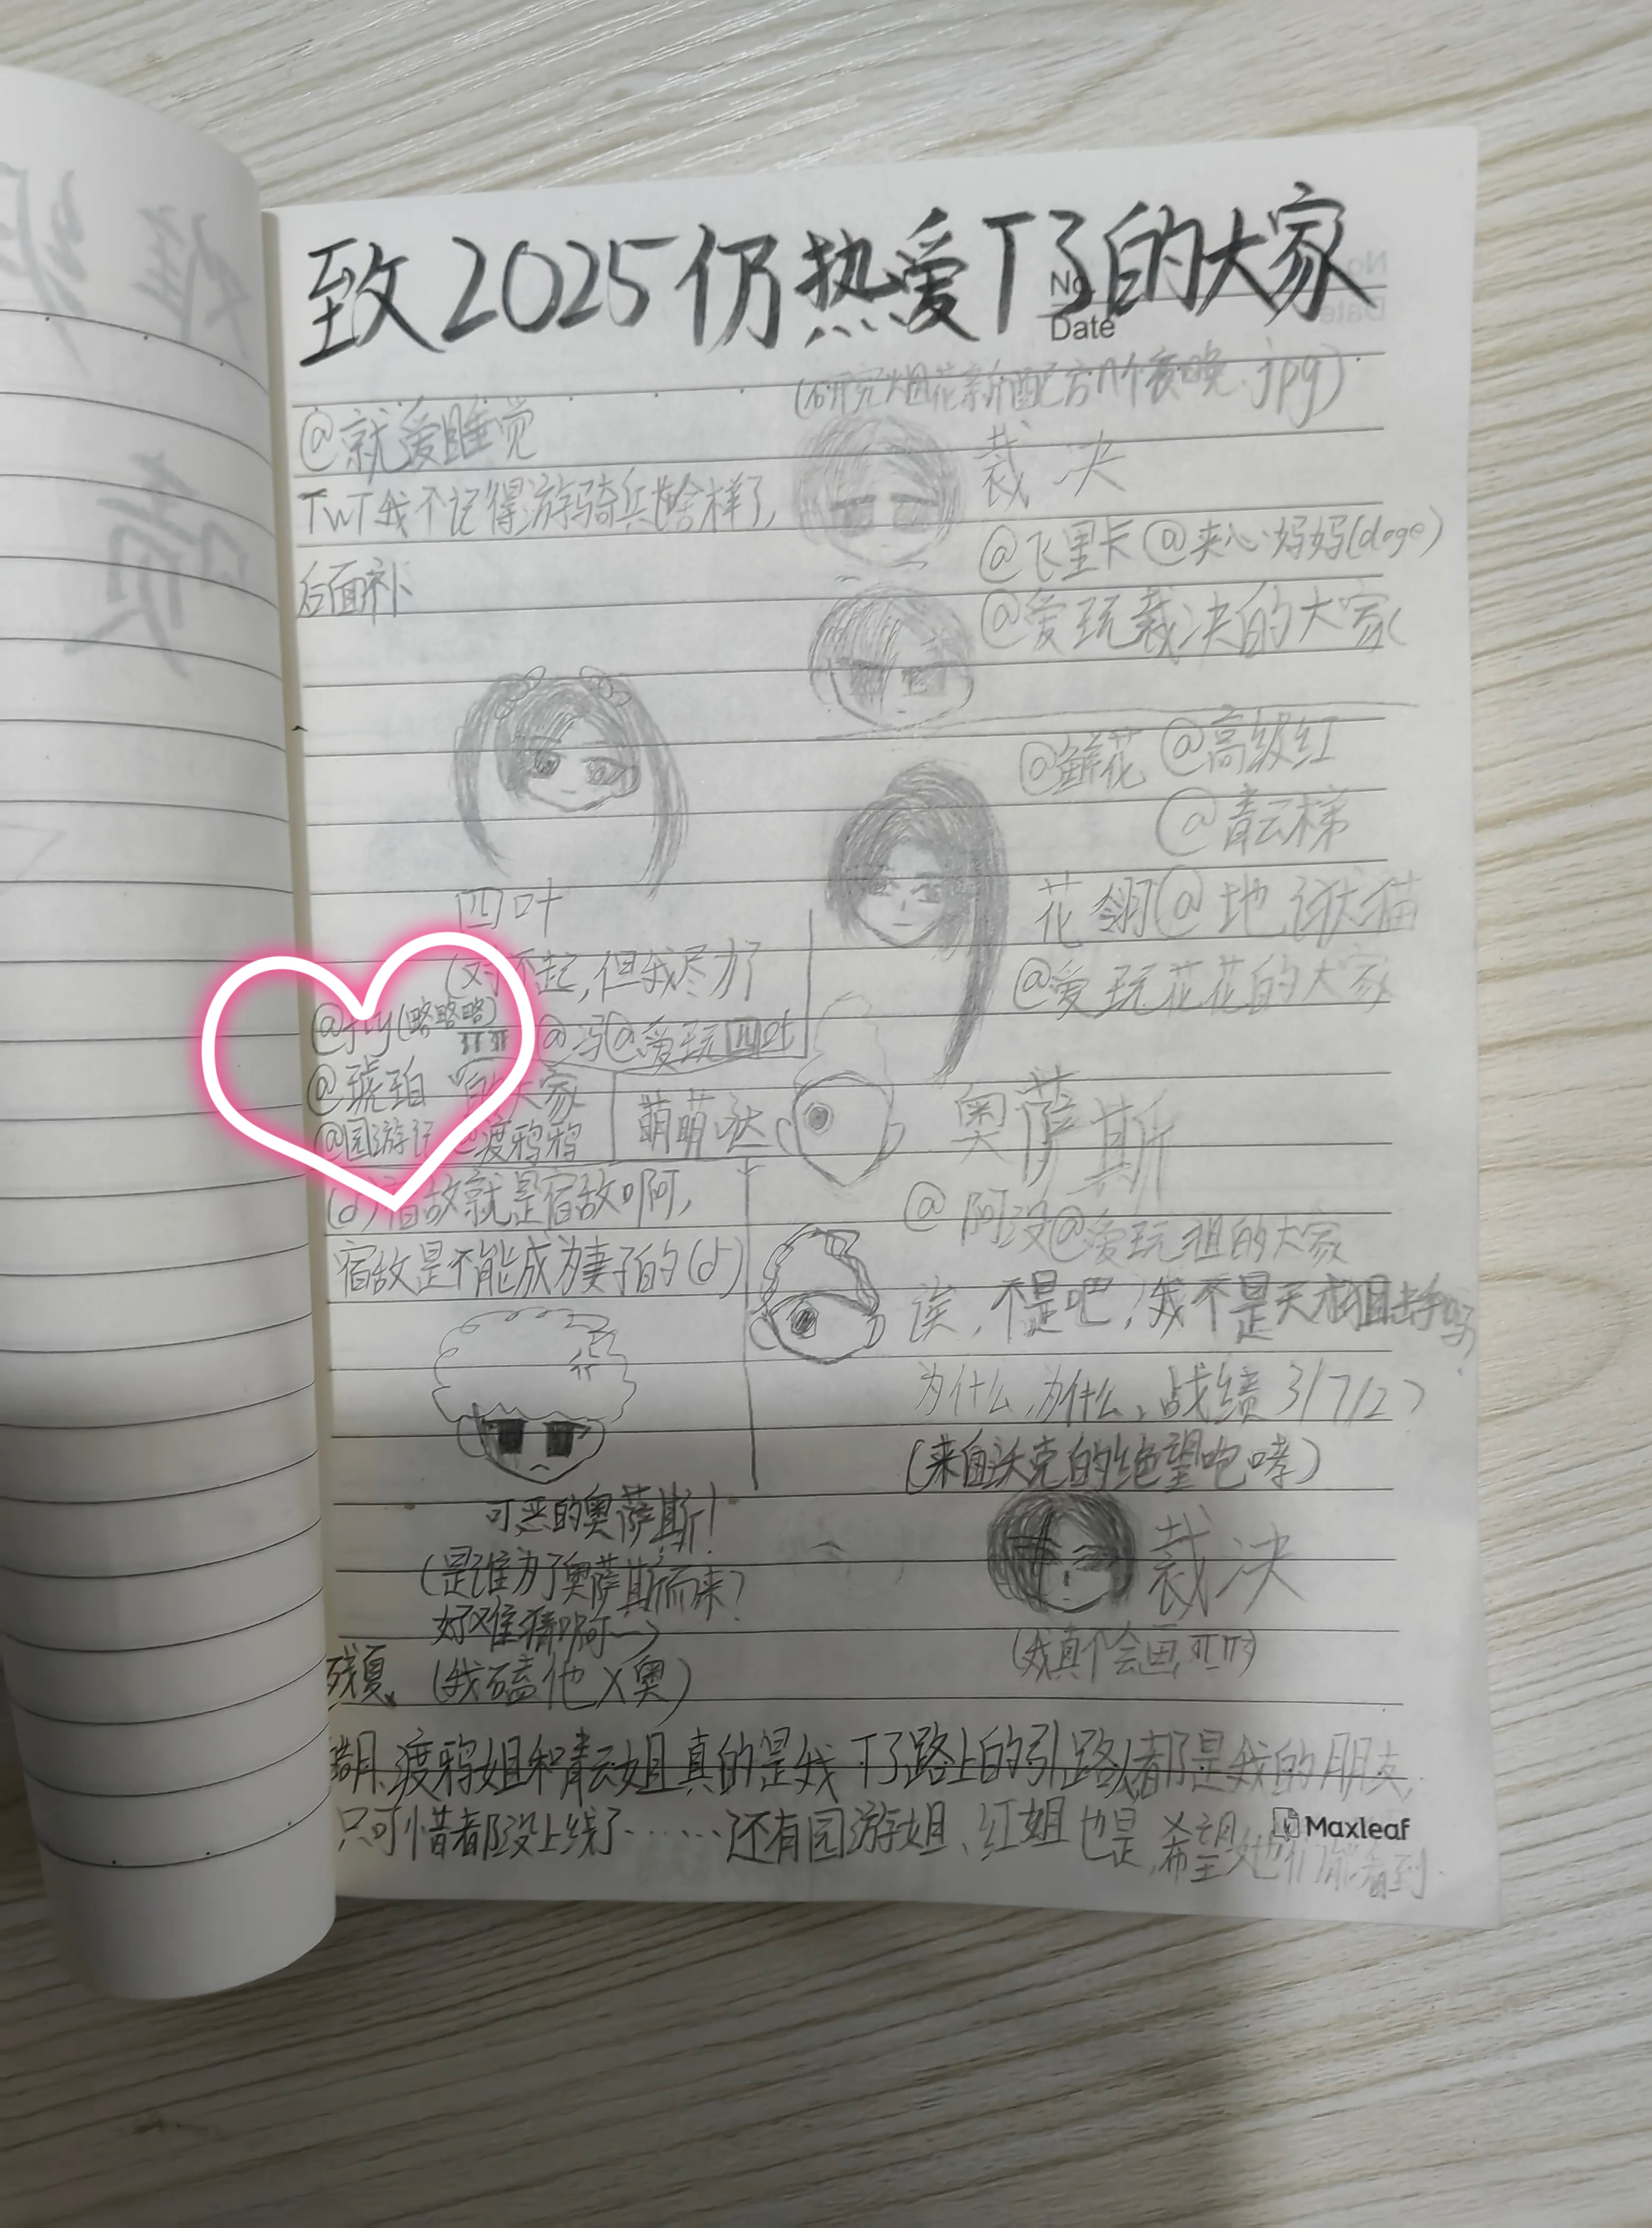 致2025仍热爱T3的大家
No
Date
(研究烟花新配方几个夜晚.jpg)
@就爱睡觉
TwT我不记得游骑兵长啥样了,
后面补
裁决
@飞里卡 @夹心妈妈(doge)
@爱玩裁决的大家(
四叶
(对不起,但我尽力了
@fly(略略略) @冯@爱玩四叶
@琥珀 的大家
@园游记 @渡鸦鸦
@鲜花 @高级红
@青云梯
花翎@地狱猫
@爱玩花花的大家
萌萌哒
奥萨斯
@阿没@爱玩狙的大家
诶,不是吧,我不是天才狙击手吗?
为什么,为什么,战绩3/7/2?
(来自沃克的绝望咆哮)
(d)宿敌就是宿敌啊,
宿敌是不能成为妻子的(d)
可恶的奥萨斯!
(是谁为了奥萨斯而来?
好难猜啊~)
(我磕他X奥)
裁决
(我真不会画
残夏、
皓月、渡鸦姐和青云姐真的是我T3路上的引路人都是我的朋友,
只可惜都没上线了……还有园游姐、红姐也是,希望她们能看到.
Maxleaf